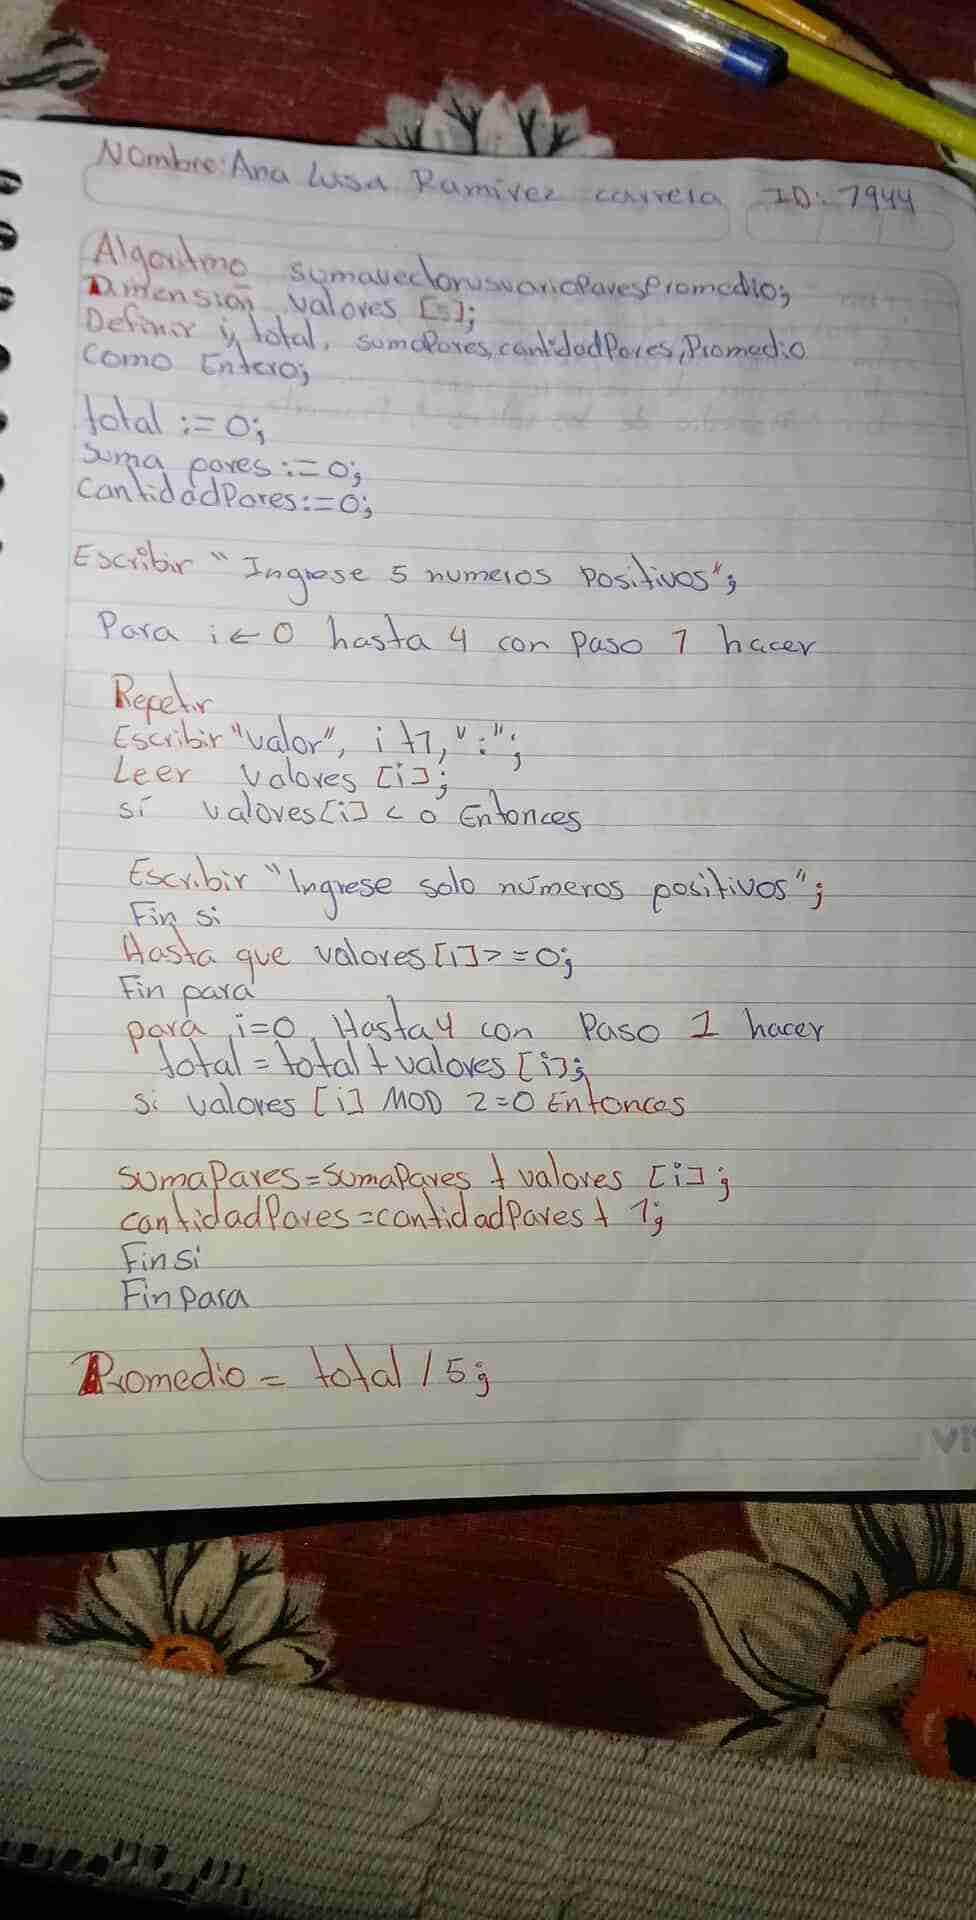 Nombre: Ana Luisa Ramirez correia ID: 7944
Algoritmo sumavectorusuarioParesPromedio;
Dimensión valores [5];
Definir i, total, sumaPares, cantidadPares, Promedio
como Entero;
total := 0;
suma pares := 0;
cantidadPares := 0;
Escribir "Ingrese 5 numeros positivos";
Para i ← 0 hasta 4 con paso 1 hacer
Repetir
Escribir "valor", i +1, ":";
Leer valores [i];
si valores[i] < 0 Entonces
Escribir "Ingrese solo números positivos";
Fin si
Hasta que valores [i] >= 0;
Fin para
para i=0 Hasta 4 con Paso 1 hacer
total = total + valores [i];
si valores [i] MOD 2=0 Entonces
sumaPares = sumaPares + valores [i];
cantidadPares = cantidadPares + 1;
Fin si
Fin para
Promedio = total / 5;